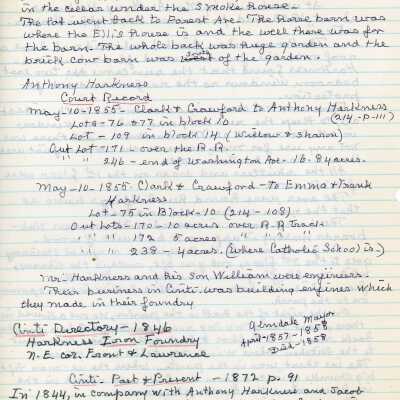 in the cellar under the Smoke house.
The lot went back to Forest Ave. The horse barn was
where the Ellis house is and the well there was for
the barn. The whole back was huge garden and the
brick cow barn was of the garden.
Anthony Harkness
Court Record
May-10-1855- Clark & Crawford to Anthony Harkness
Lots-76 & 77 in block 10 (214-p-111)
Lot - 109 in block 14 (Winslow & Sharon)
Out Lot-171- over the R.R.
" " 246 - end of Washington Ave- 16.84 acres.
May-10-1855 Clark & Crawford-To Emma & Frank
Harkness
Lot-75 in Block-10 (214-108)
Out Lots-170-10 acres over R.R. Track
" " 172 5 acres " " "
" " 238 - 4 acres. (Where Catholic School is.)
Mr. Harkness and his son William were engineers.
Their business in Cinti. was building engines which
they made in their foundry
Cinti Directory-1846
Harkness Iron Foundry
N.E. cor. Front & Lawrence
Glendale Mayor
April-1857-1858
Died-1858
Cinti- Past & Present - 1872 p. 91
In 1844, in company with Anthony Harkness and Jacob